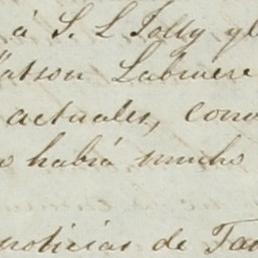 á S. L Jolly y
Watson Labruere
actuales, con
había mucho
noticias de Ta